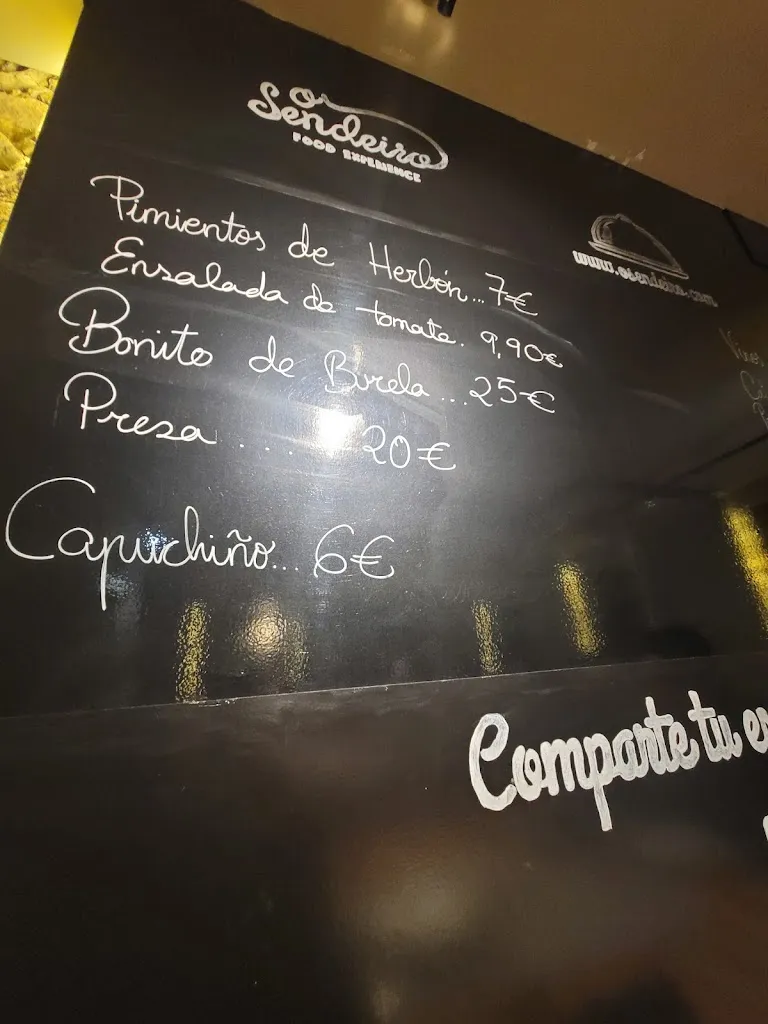 O Sendeiro
FOOD EXPERIENCE
www.osendeiro.com
Pimientos de Herbón...7€
Ensalada de tomate. 9,90€
Bonito de Burela...25€
Presa .... 20€
Capuchiño... 6€
Comparte tu